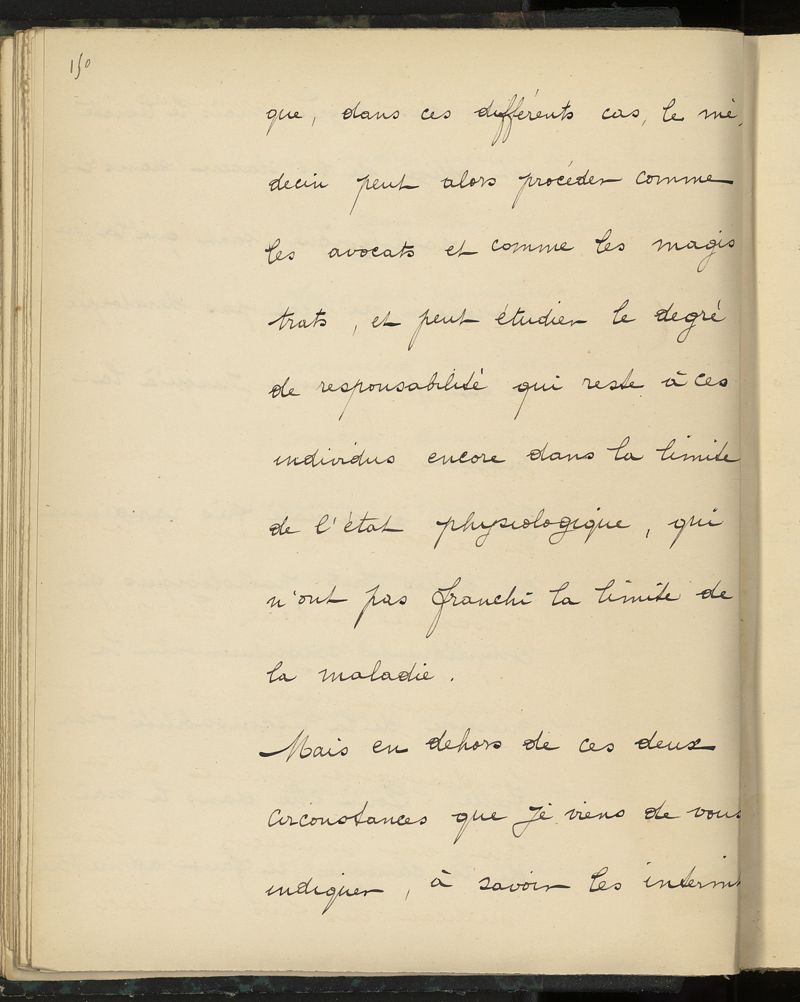 150
que, dans ces différents cas, le mé,
decin peut alors procéder comme
les avocats et comme les magis
trats, et peut étudier le degré
de responsabilité qui reste à ces
individus encore dans la limite
de l'état physiologique, qui
n'ont pas franchi la limite de
la maladie.
Mais en dehors de ces deux
circonstances que je viens de vous
indiquer, à savoir les intermi